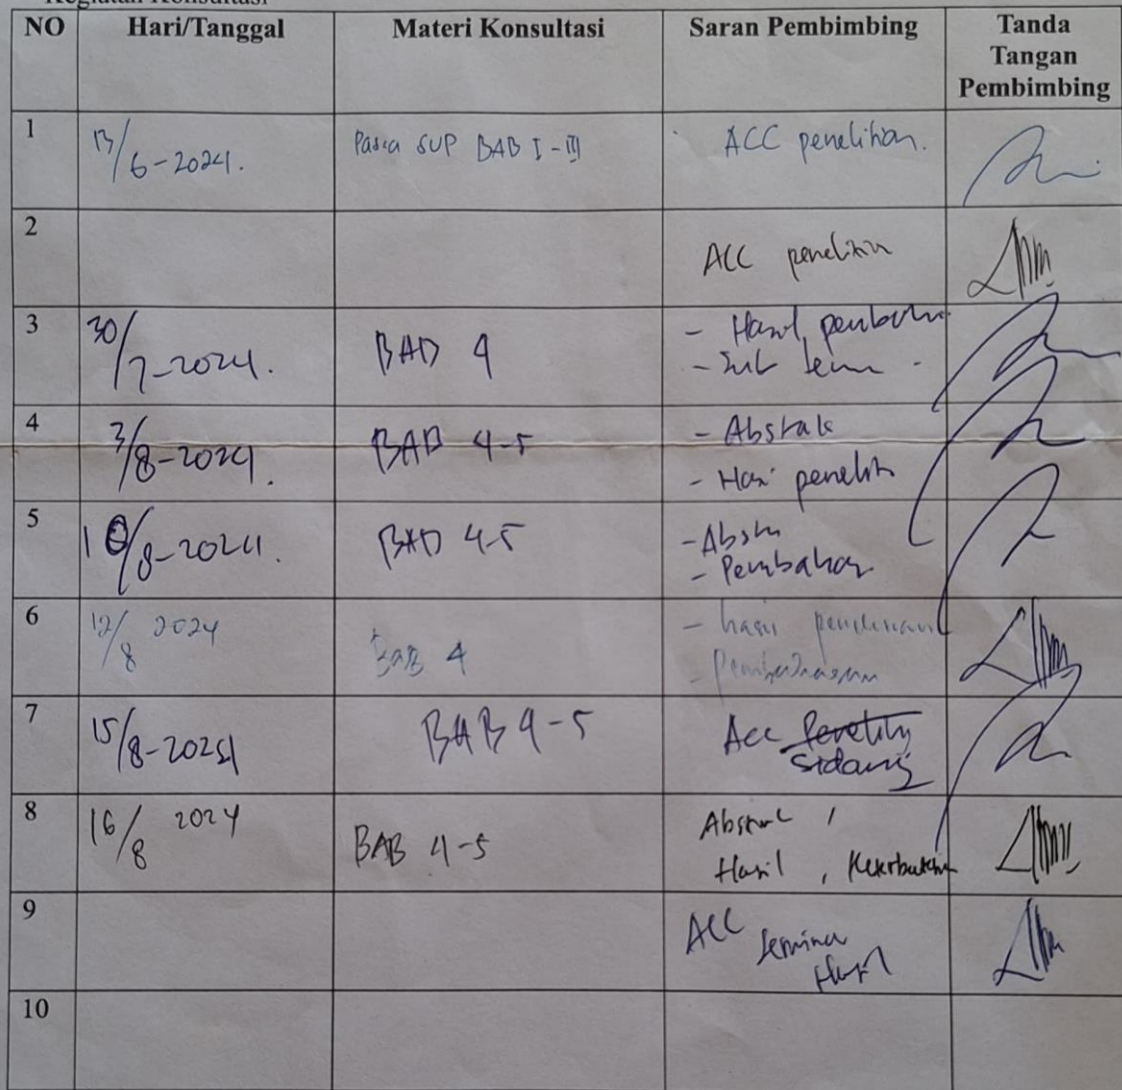 Kegiatan Konsultasi
NO Hari/Tanggal Materi Konsultasi Saran Pembimbing Tanda
Tangan
Pembimbing
1 13/6-2024. Pasca SUP BAB I-III ACC penelitian.
2 ACC penelitian
3 30/7-2024. BAB 4 - Hasil, pembahasan
- Sub
4 3/8-2024. BAB 4-5 - Abstrak
- Hasil penelitian
5 10/8-2024. BAB 4-5 - Abstrak
- Pembahasan
6 12/8 2024 BAB 4 - hasil penelitian
- Pembahasan
7 15/8-2024 BAB 4-5 Acc
Sidang
8 16/8 2024 BAB 4-5 Abstrak,
Hasil,
9 ACC Seminar
Hasil
10